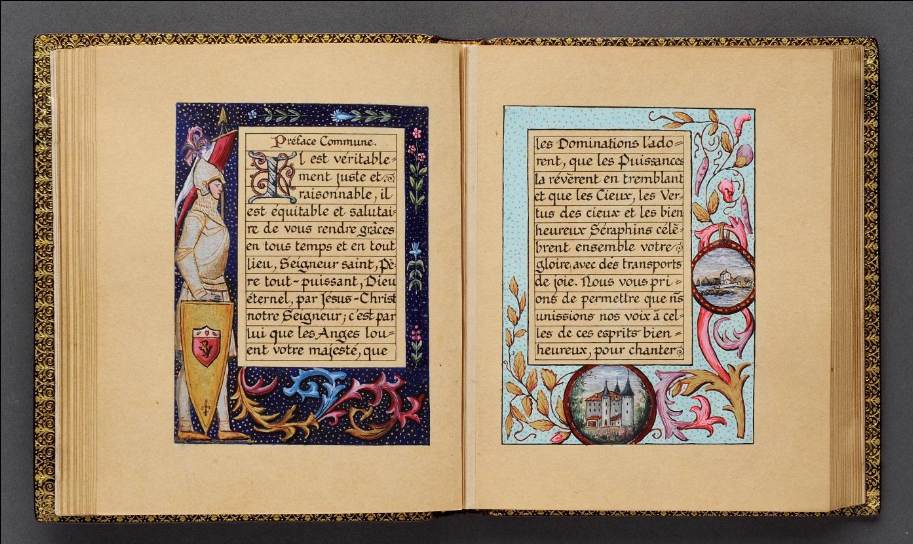 Préface Commune.
Il est véritable-
ment juste et
raisonnable, il
est équitable et salutai-
re de vous rendre grâces
en tous temps et en tout
lieu, Seigneur saint, Pè-
re tout-puissant, Dieu
éternel, par Jésus-Christ
notre Seigneur; c'est par
lui que les Anges lou-
ent votre majesté, que
les Dominations l'ado-
rent, que les Puissances
la révèrent en tremblant
et que les Cieux, les Ver-
tus des cieux et les bien
heureux Séraphins célè-
brent ensemble votre
gloire, avec des transports
de joie. Nous vous pri-
ons de permettre que ns
unissions nos voix à cel-
les de ces esprits bien-
heureux, pour chanter